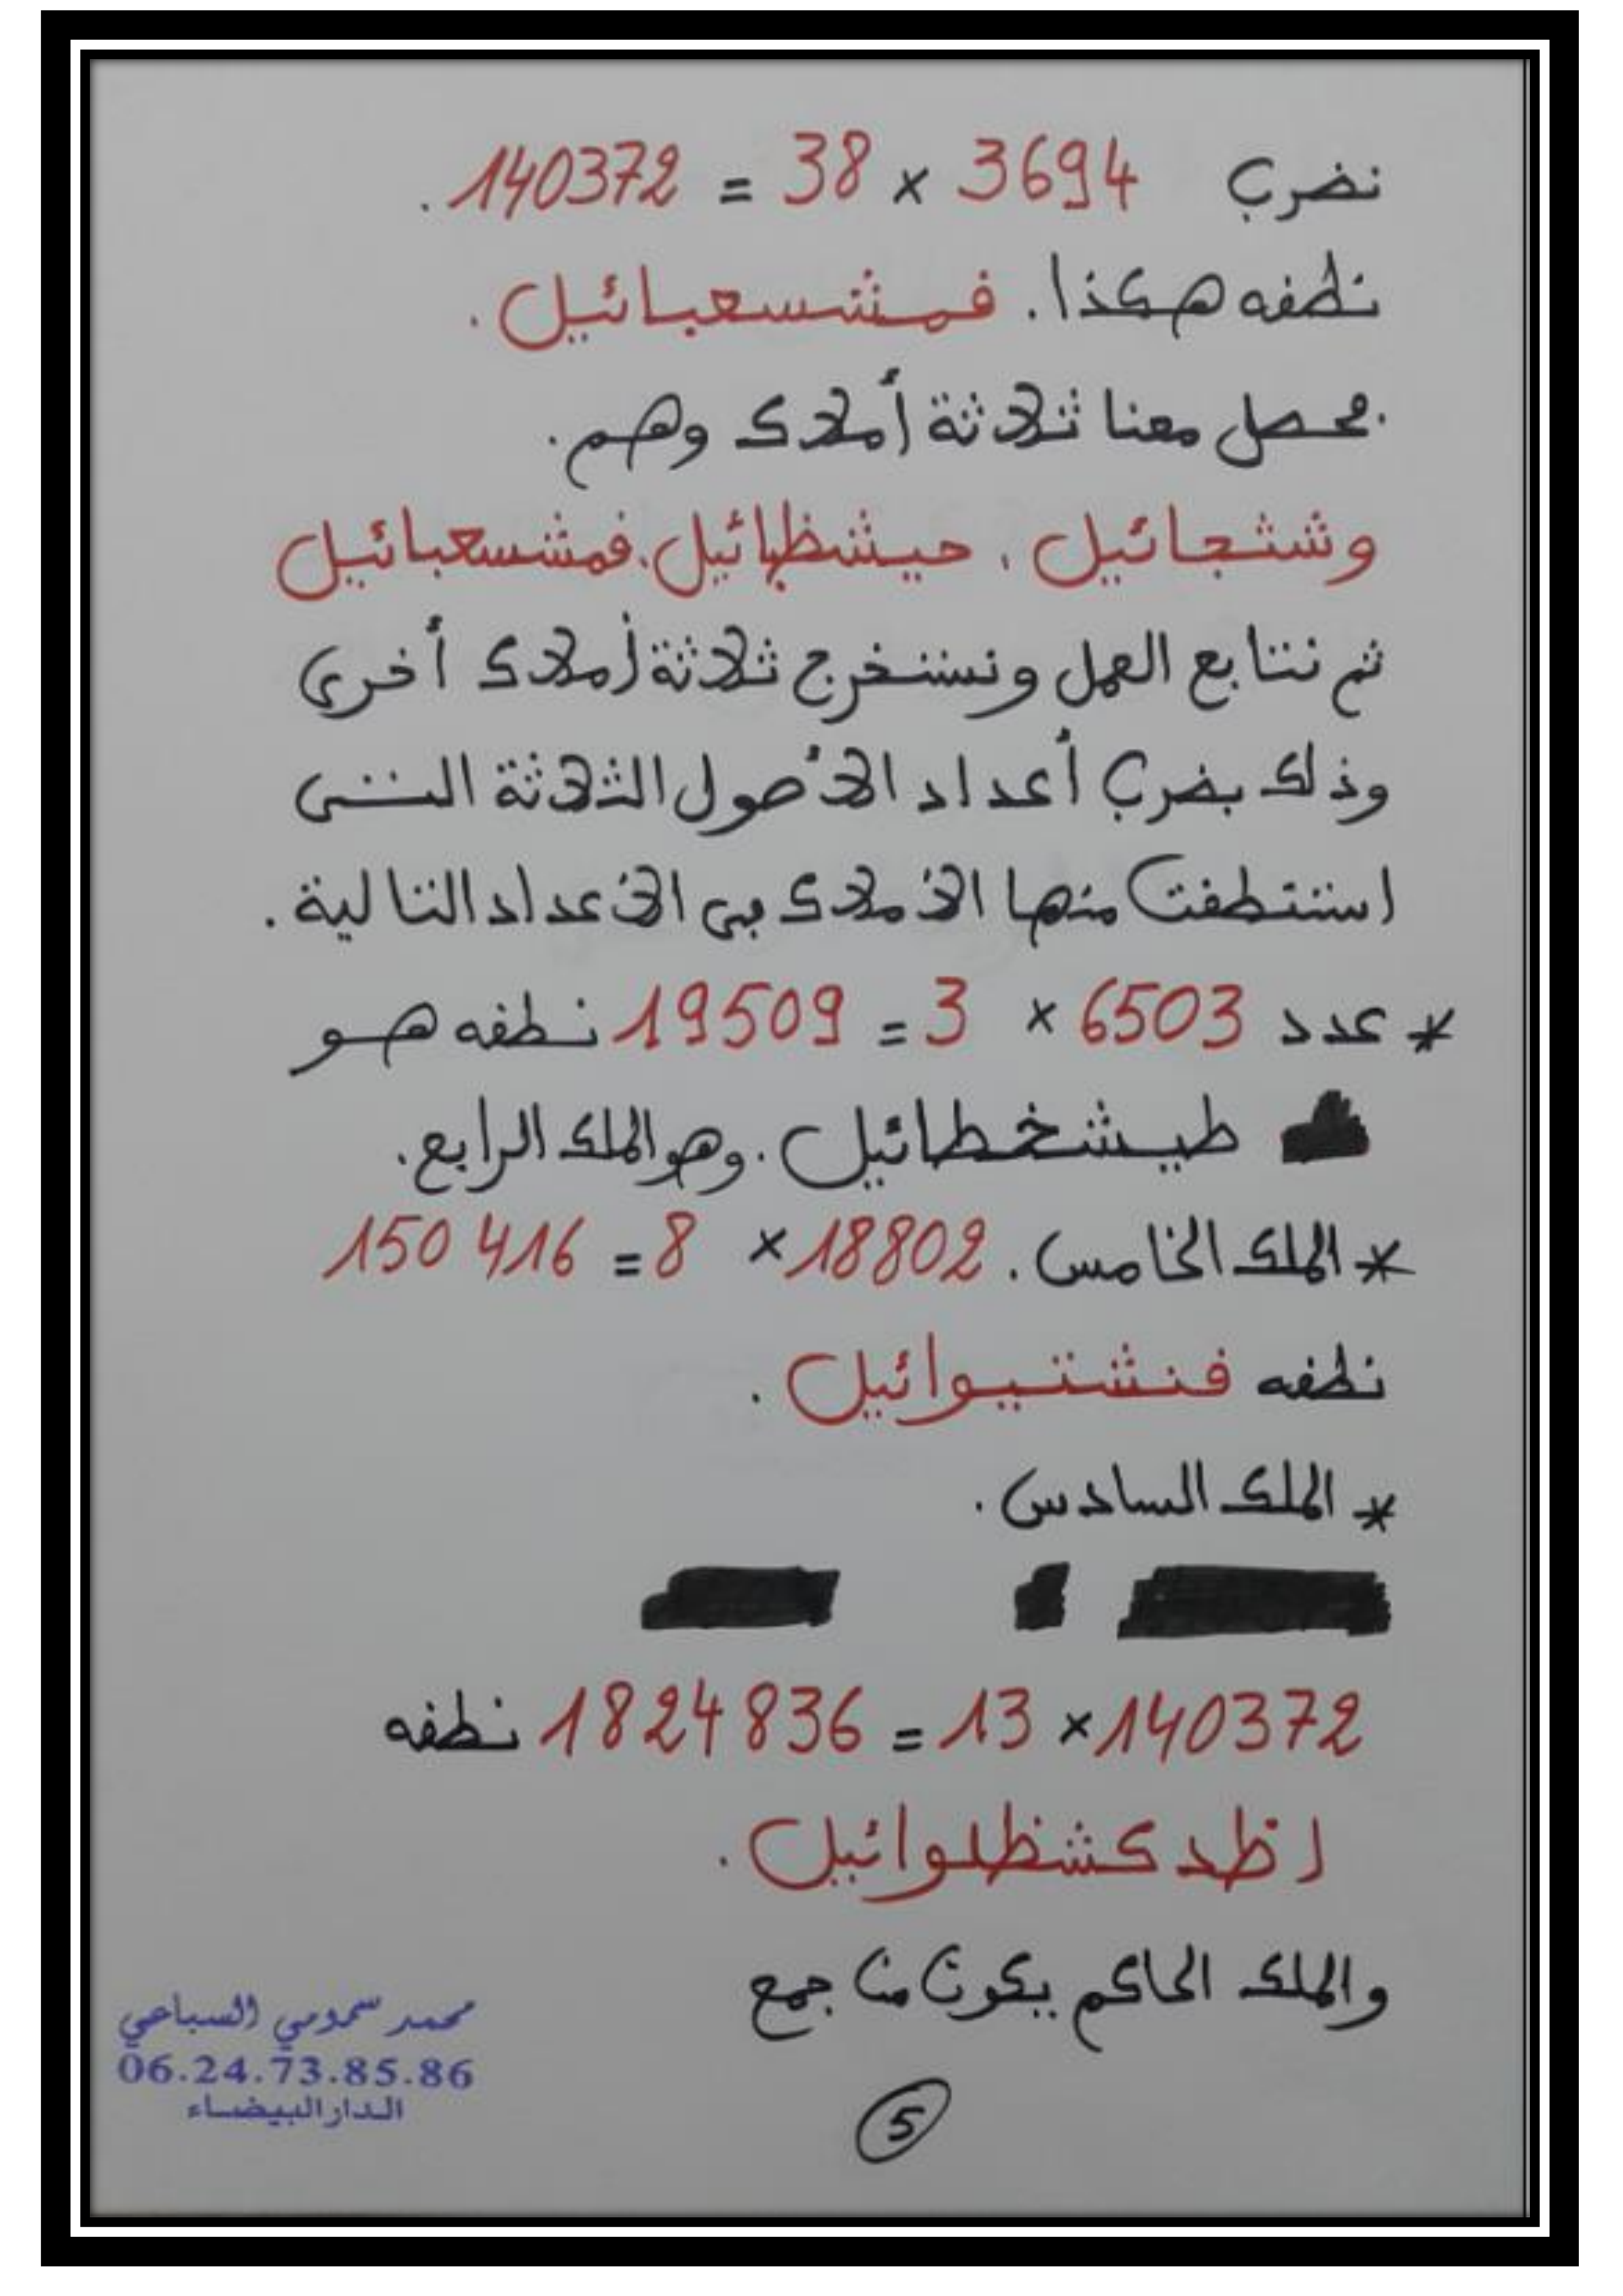 نضرب 3694 × 38 = 140372 .
نطفه هكذا . فمشسعبائيل .
يحصل معنا ثلاثة أملاك وهم .
وشثجائيل ، حيشظبائيل ، فمشسعبائيل
ثم نتابع العمل ونستخرج ثلاثة أملاك أخرى
وذلك بضرب أعداد الأصول الثلاثة التي
استنطفت منها الأملاك في الأعداد التالية .
* عدد 6503 × 3 = 19509 نطفه هو
طيشخطائيل . وهو الملك الرابع .
* الملك الخامس . 18802 × 8 = 150416
نطفه فنشتيوائيل .
* الملك السادس .
140372 × 13 = 1824836 نطفه
اظدكشظلوائيل .
والملك الحاكم يكون من جمع
محمد سمومي السباعي
06.24.73.85.86
الدار البيضاء
5